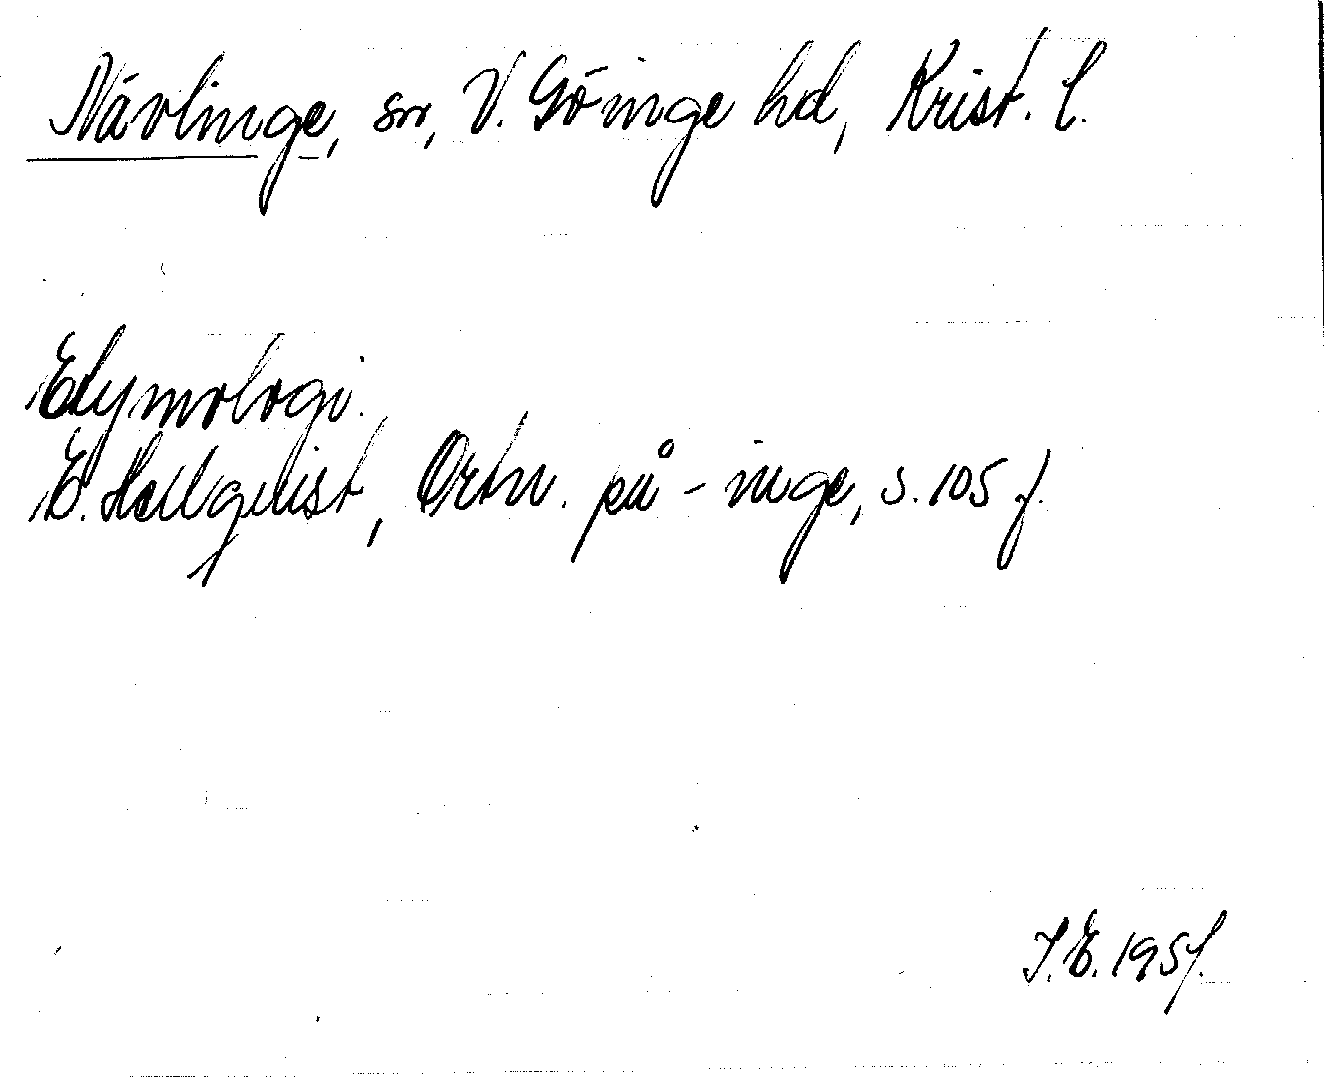 Nävlinge, sn, V. Göinge hd, Krist. l.
Etymologi.
E. Hellquist, Ortn. på -inge, s. 105 f.
I.E. 1951.